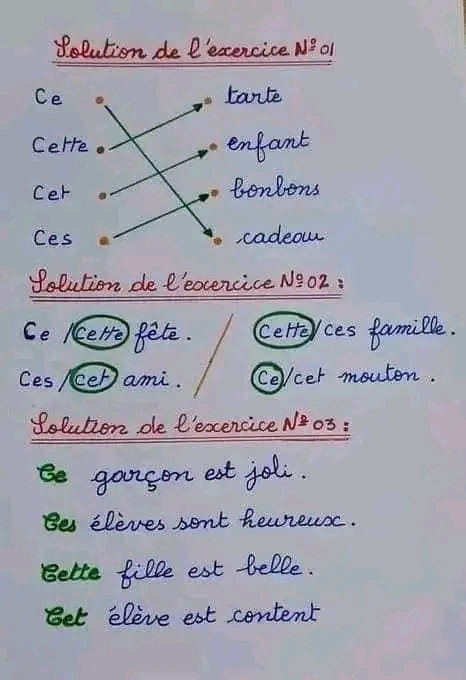 Solution de l'exercice Nº 01
Ce tarte
Cette enfant
Cet bonbons
Ces cadeau
Solution de l'exercice Nº 02 :
Ce / Cette fête. / Cette/ces famille.
Ces / cet ami. / Ce/cet mouton.
Solution de l'exercice Nº 03 :
Ce garçon est joli.
Ces élèves sont heureux.
Cette fille est belle.
Cet élève est content